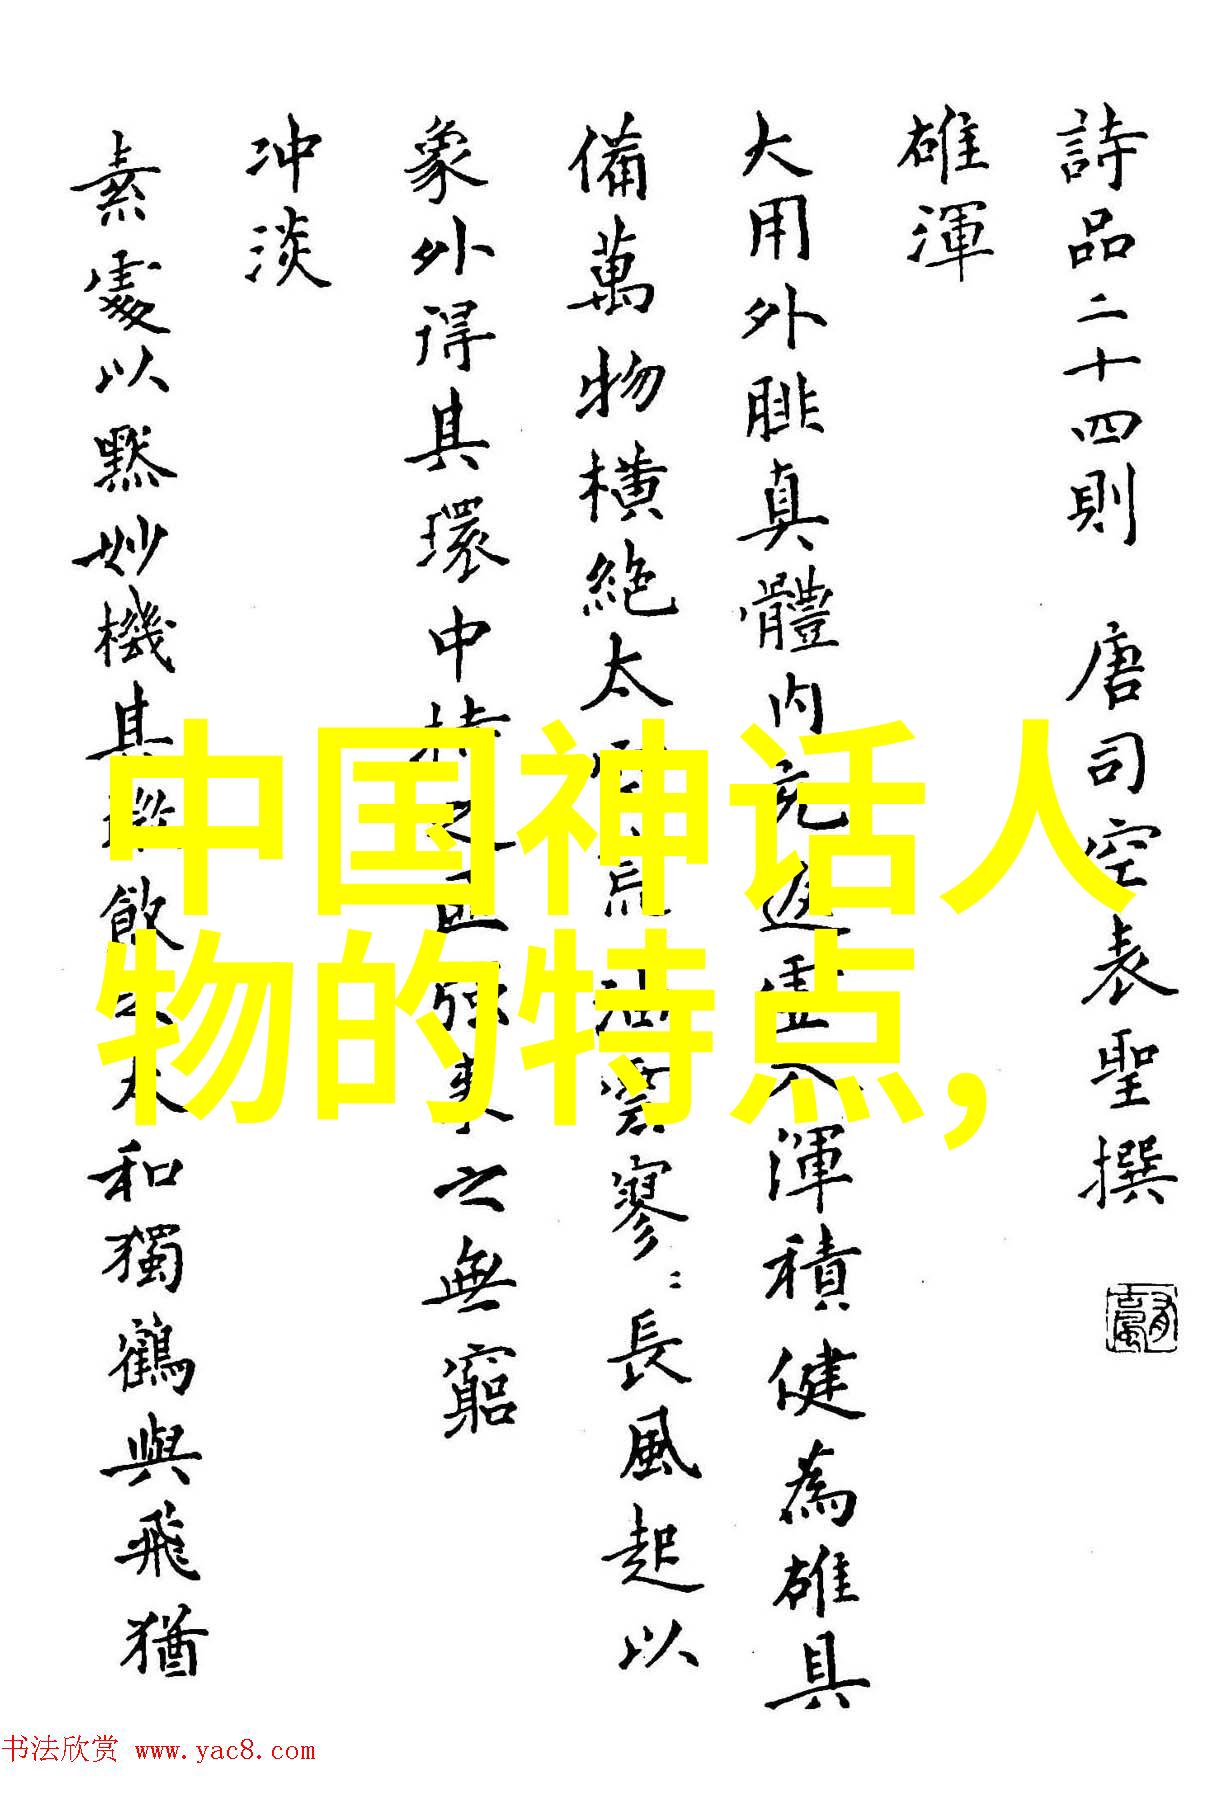 詩品二十四則 唐司空表聖撰
雄渾
大用外腓真體内充返虛入渾積健為雄具
備萬物橫絕太荒油雲寥︰長風起以
象外得其環中持之匪強來之無窮
冲淡
素處以默妙機其飲太和獨鶴與飛猶
中国神话人
物的特点,
书法欣赏 www.yac8.com